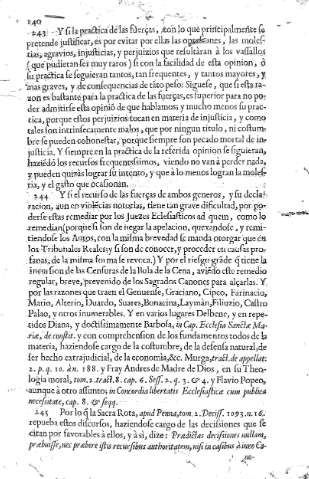 240
243 Y si la practica de las fuerças, con lo que principalmente se
pretende justificar, es por evitar por ellas las opresiones, las moles-
tias, agravios, injusticias, y perjuizios que resultaràn à los vassallos
(que pudieran ser muy raros) si con la facilidad de esta opinion, ò
su practica se seguieran tantos, tan frequentes, y tantos mayores, y
mas graves, y de consequencias de otro peso: Siguese, que si esta ra-
zon es bastante para la practica de las fuerças, es superior para no po-
der admitirse esta opiniò de que hablamos, y mucho menos su prac-
tica, porque estos perjuizios tocan en materia de injusticia, y como
tales son intrinsecamente malos, que por ningun titulo, ni costum-
bre se pueden cohonestar, porque siempre son pecado mortal de in-
justicia. Y siempre en la practica de la referida opinion se siguieran,
haziēdo los recursos frequentissimos, viendo no van à perder nada,
y pueden quizàs lograr su intento, y que à lo menos logran la moles-
tia, y el gasto que ocasionan.
244 Y si el recurso de las fuerças de ambos generos, y su decla-
racion, aun en violēcias notorias, tiene tan grave dificultad, por po-
derse estas remediar por los Juezes Eclesiasticos ad quem, como lo
remedian (porque si son de negar la apelacion, quexandose, y remi-
tiendose los Autos, con la misma brevedad se manda otorgar que en
los Tribunales Reales; y si son de conocer, y proceder en causas profa-
nas, de la misma forma se revoca.) Y por el riesgo grāde q̃ tiene la
incursion de las Censuras de la Bula de la Cena, aviēdo este remedio
regular, breve, prevenido de los Sagrados Canones para alçarlas. Y
por las razones que traen el Genuense, Graciano, Cipco, Farinacio,
Mario, Alterin, Duardo, Suares, Bonacina, Layman, Filiuzio, Castro
Palao, y otros inumerables. Y en varios lugares Delbene, y en repe-
tidos Diana, y doctissimamente Barbosa, in Cap. Ecclesia Sanctæ Mar-
iæ, de constit. y con comprehension de los fundamentos todos de la
materia, haziendose cargo de la costumbre, de la defensa natural, de
ser hecho extrajudicial, de la economia, &c. Murga, tract. de appellat.
2. p. q. 10. àn. 188. y Fray Andres de Madre de Dios, en su Theo-
logia moral, tom. 2. tract. 8. cap. 6. Sess. 2. q. 3. & 4. y Flavio Popen,
aunque à otro assunto, in Concordia libertatis Ecclesiasticæ cum publica
necesitate, cap. 8. & seqq.
245 Por lo q̃ la Sacra Rota, apud Penna, tom. 2. Deciss. 1093. n. 16.
reprueba estos discursos, haziendose cargo de las decisiones que se
citan por favorables à ellos, y à si, dize: Prædictas decisiones nullam,
præbuisse, nec præbere istis recursibus authoritatem, nisi in casibus à iure Ca-